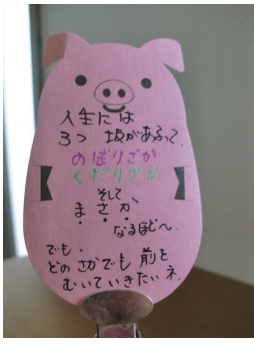 人生には
3つ 坂があって、
のぼりざか
くだりざか
そして
まさか、
なるほど〜
でも、
どのさかでも前を
むいていきたいネ.